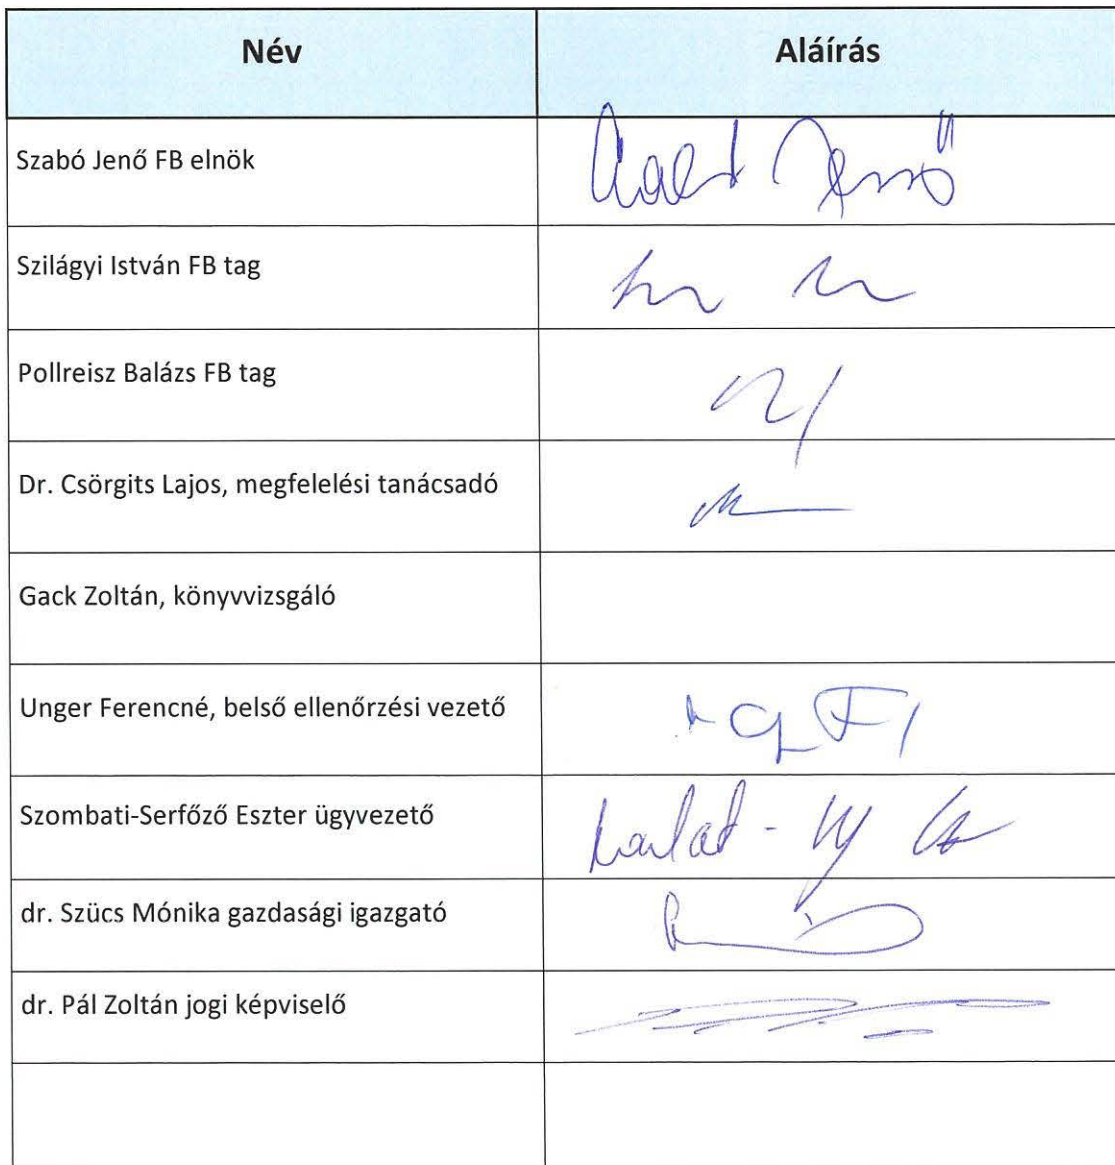 Név Aláírás
Szabó Jenő FB elnök
Szilágyi István FB tag
Pollreisz Balázs FB tag
Dr. Csörgits Lajos, megfelelési tanácsadó
Gack Zoltán, könyvvizsgáló
Unger Ferencné, belső ellenőrzési vezető
Szombati-Serfőző Eszter ügyvezető
dr. Szücs Mónika gazdasági igazgató
dr. Pál Zoltán jogi képviselő